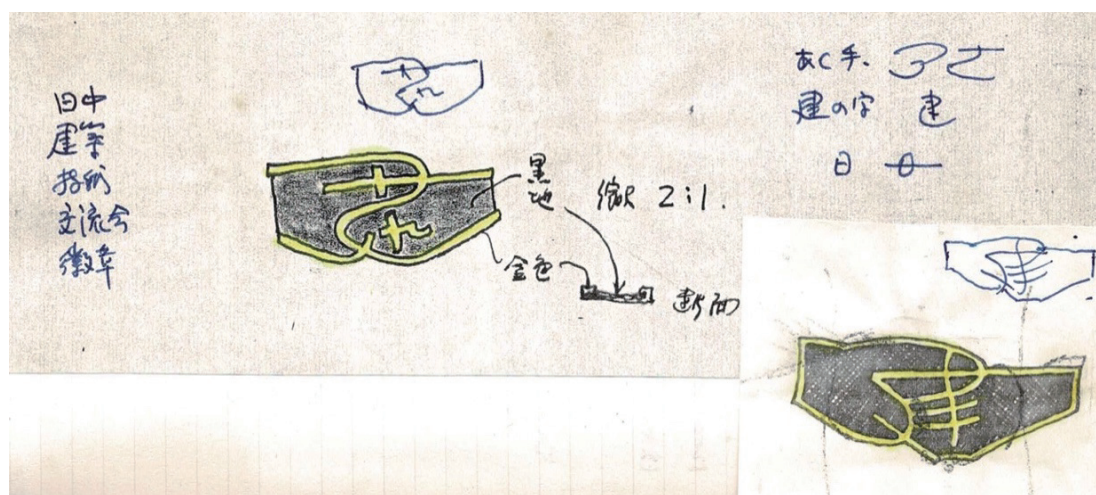 日中
建築
技術
交流会
徽章
黒
地
縮尺 2:1.
金色
断面
あく手、
建の字 建
日